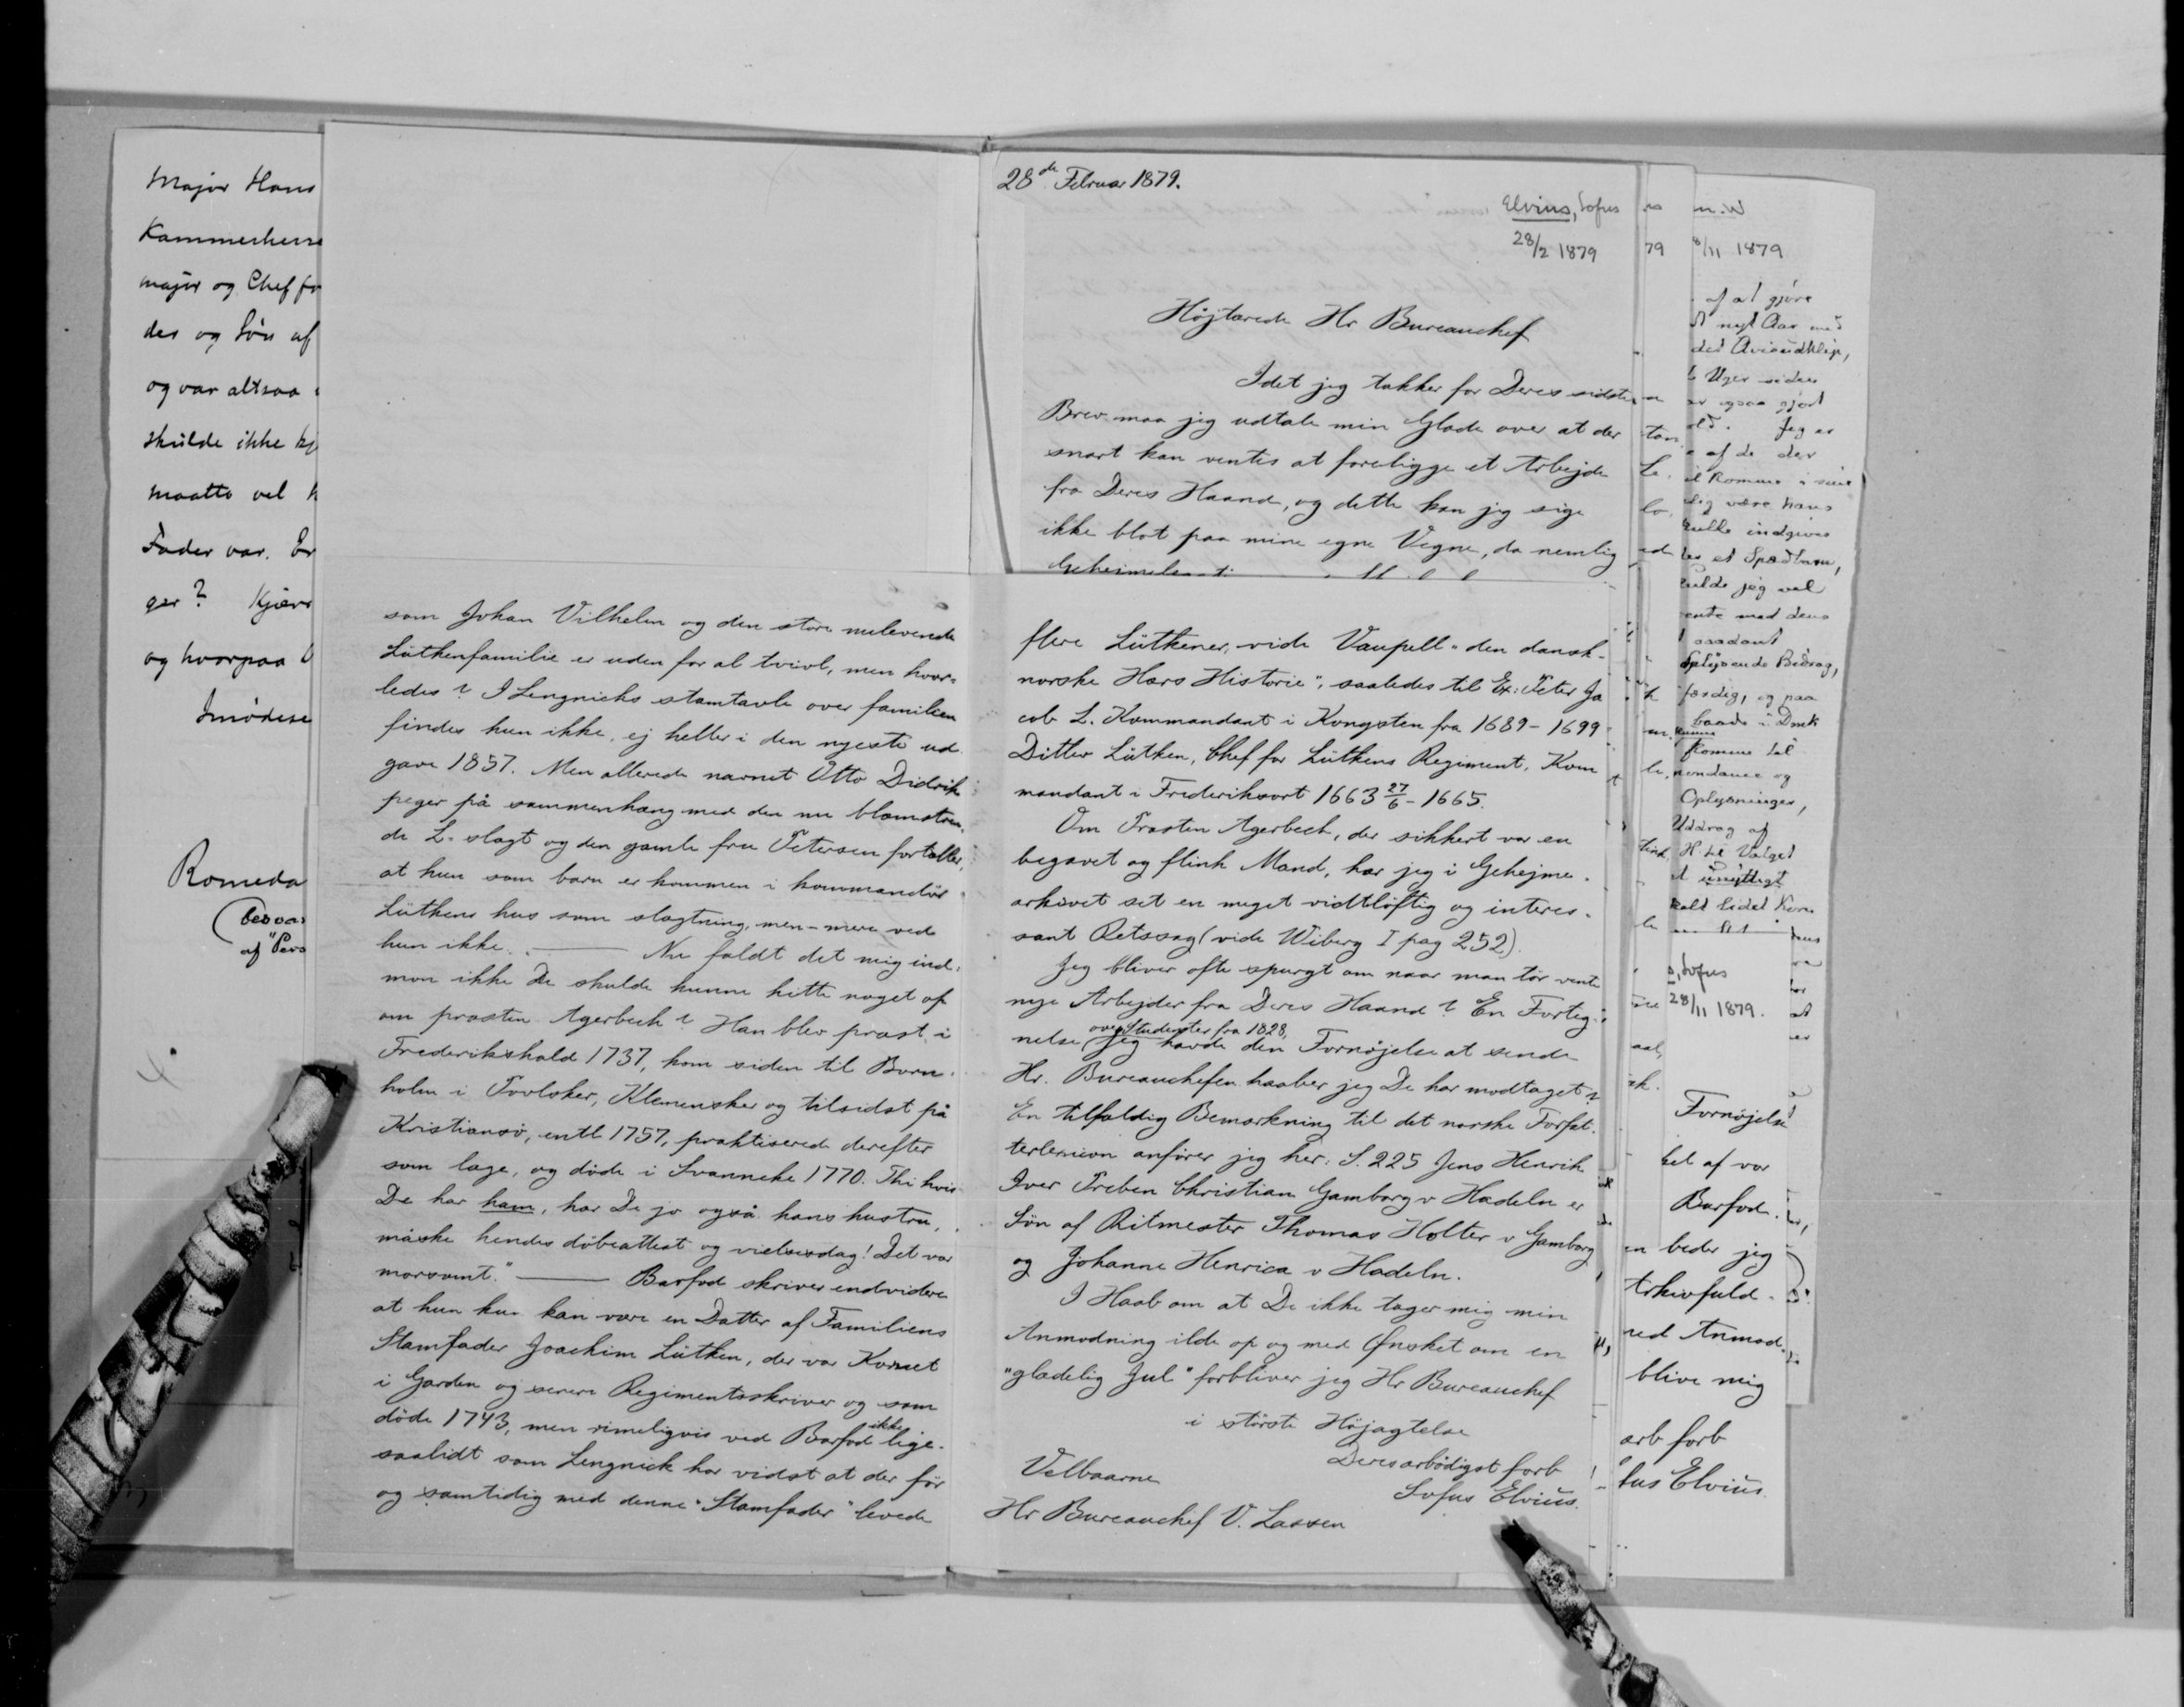 Major Hans
Kammerherre
major og Chef fo
des og Søn af
og var altsaa
skulde ikke kj
maatte vel
Fader var. Er
ger? Kjær
og hvorpaa
Imødese
Romeda
af "Pers
som Johan Vilhelm og den store nulevende
Lütkenfamilie er uden for al tvivl, men hvor-
ledes? I Lengnicks stamtavle over familien
findes hun ikke, ej heller i den nyeste ud
gave 1857. Men allerede navnet Otto Didrik
peger på sammenhæng med den nu blomstren-
de L-slægt og den gamle fru Petersen fortæller,
at hun som barn er kommen i kommandör
Lütkens hus som slægtning, men - mere ved
hun ikke. — Nu faldt det mig ind:
mon ikke De skulde kunne hitte noget op
om præsten Agerbech? Han blev præst i
Frederikshald 1737, kom siden til Born-
holm i Povlsker, Klemensker og tilsidst på
Kristiansö, entl. 1757, praktiserede derefter
som læge, og döde i Svanneke 1770. Thi hvis
De har ham, har De jo også hans hustru,
måske hendes döbeattest og vielsesdag! Det var
morsomt." — Barfod skriver endvidere
at hun kun kan være en Datter af Familiens
Stamfader Joachim Lütken, der var Kornet
i Garden og senere Regimentsskriver og som
døde 1743, men rimeligvis ved Barfod ikke lige-
saalidt som Lengnick har vidst at der før
og samtidig med denne "Stamfader" levede
28de Februar 1879.
Elvius, Sofus
28/2 1879
Højtærede Hr Bureauchef
Idet jeg takker for Deres sidste
Brev maa jeg udtale min Glæde over at der
snart kan ventes at foreligge et Arbejde
fra Deres Haand, og dette kan jeg sige
ikke blot paa mine egne Vegne, da nemlig
flere Lütkener, vide Vaupell "den dansk-
norske Hærs Historie", saaledes til Ex: Peter Ja
cob L. Kommandant i Kongsten fra 1689-1699
Ditlev Lütken, Chef for Lütkens Regiment, Kom
mandant i Frederiksort 1663 27/6 - 1665.
Om Præsten Agerbech, der sikkert var en
begavet og flink Mand, har jeg i Gehejme-
arkivet set en meget vidtløftig og interes-
sant Retssag (vide Wiberg I pag 252).
Jeg bliver ofte spurgt om naar man tør vente
nye Arbejder fra Deres Haand? En Forteg-
nelse over Studenter fra 1828, jeg havde den Fornøjelse at sende
Hr. Bureauchefen haaber jeg De har modtaget?
En tilfældig Bemærkning til det norske Forfat-
terlexicon anfører jeg her: S. 225 Jens Henrik
Iver Preben Christian Gamborg v Hadeln er
Søn af Ritmester Thomas Holter v Gamborg
og Johanne Henrica v Hadeln.
I Haab om at De ikke tager mig min
Anmodning ilde op og med Ønsket om en
"glædelig Jul" forbliver jeg Hr Bureauchef
i største Højagtelse
Deres ærbødigst forb
Sofus Elvius.
Velbaarne
Hr Bureauchef V. Lassen
8/11 1879
af at gjøre
Uger siden
Jeg er
af de der
være hans
indgives
et Spædbarn,
jeg vel
med dens
saadant
Bidrag,
færdig, og paa
komme til
Oplysninger,
Uddrag af
Valget
unyttigt
Sofus
28/11 1879.
Fornøjelse
ket af vor
Barfod.
en beder jeg
Arkivfuld-
ved Anmod-
blive mig
ærb forb
fus Elvius.